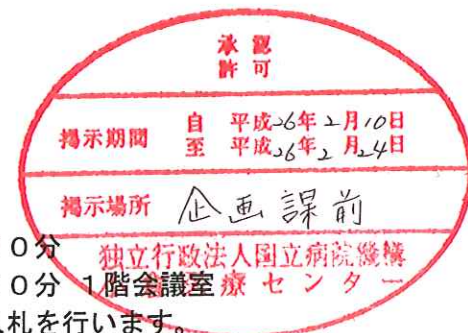 承認
許可
掲示期間 自 平成26年2月10日
至 平成26年2月24日
掲示場所 企画課前
0分
独立行政法人国立病院機構
0分 1階会議室
療センター
札を行います。